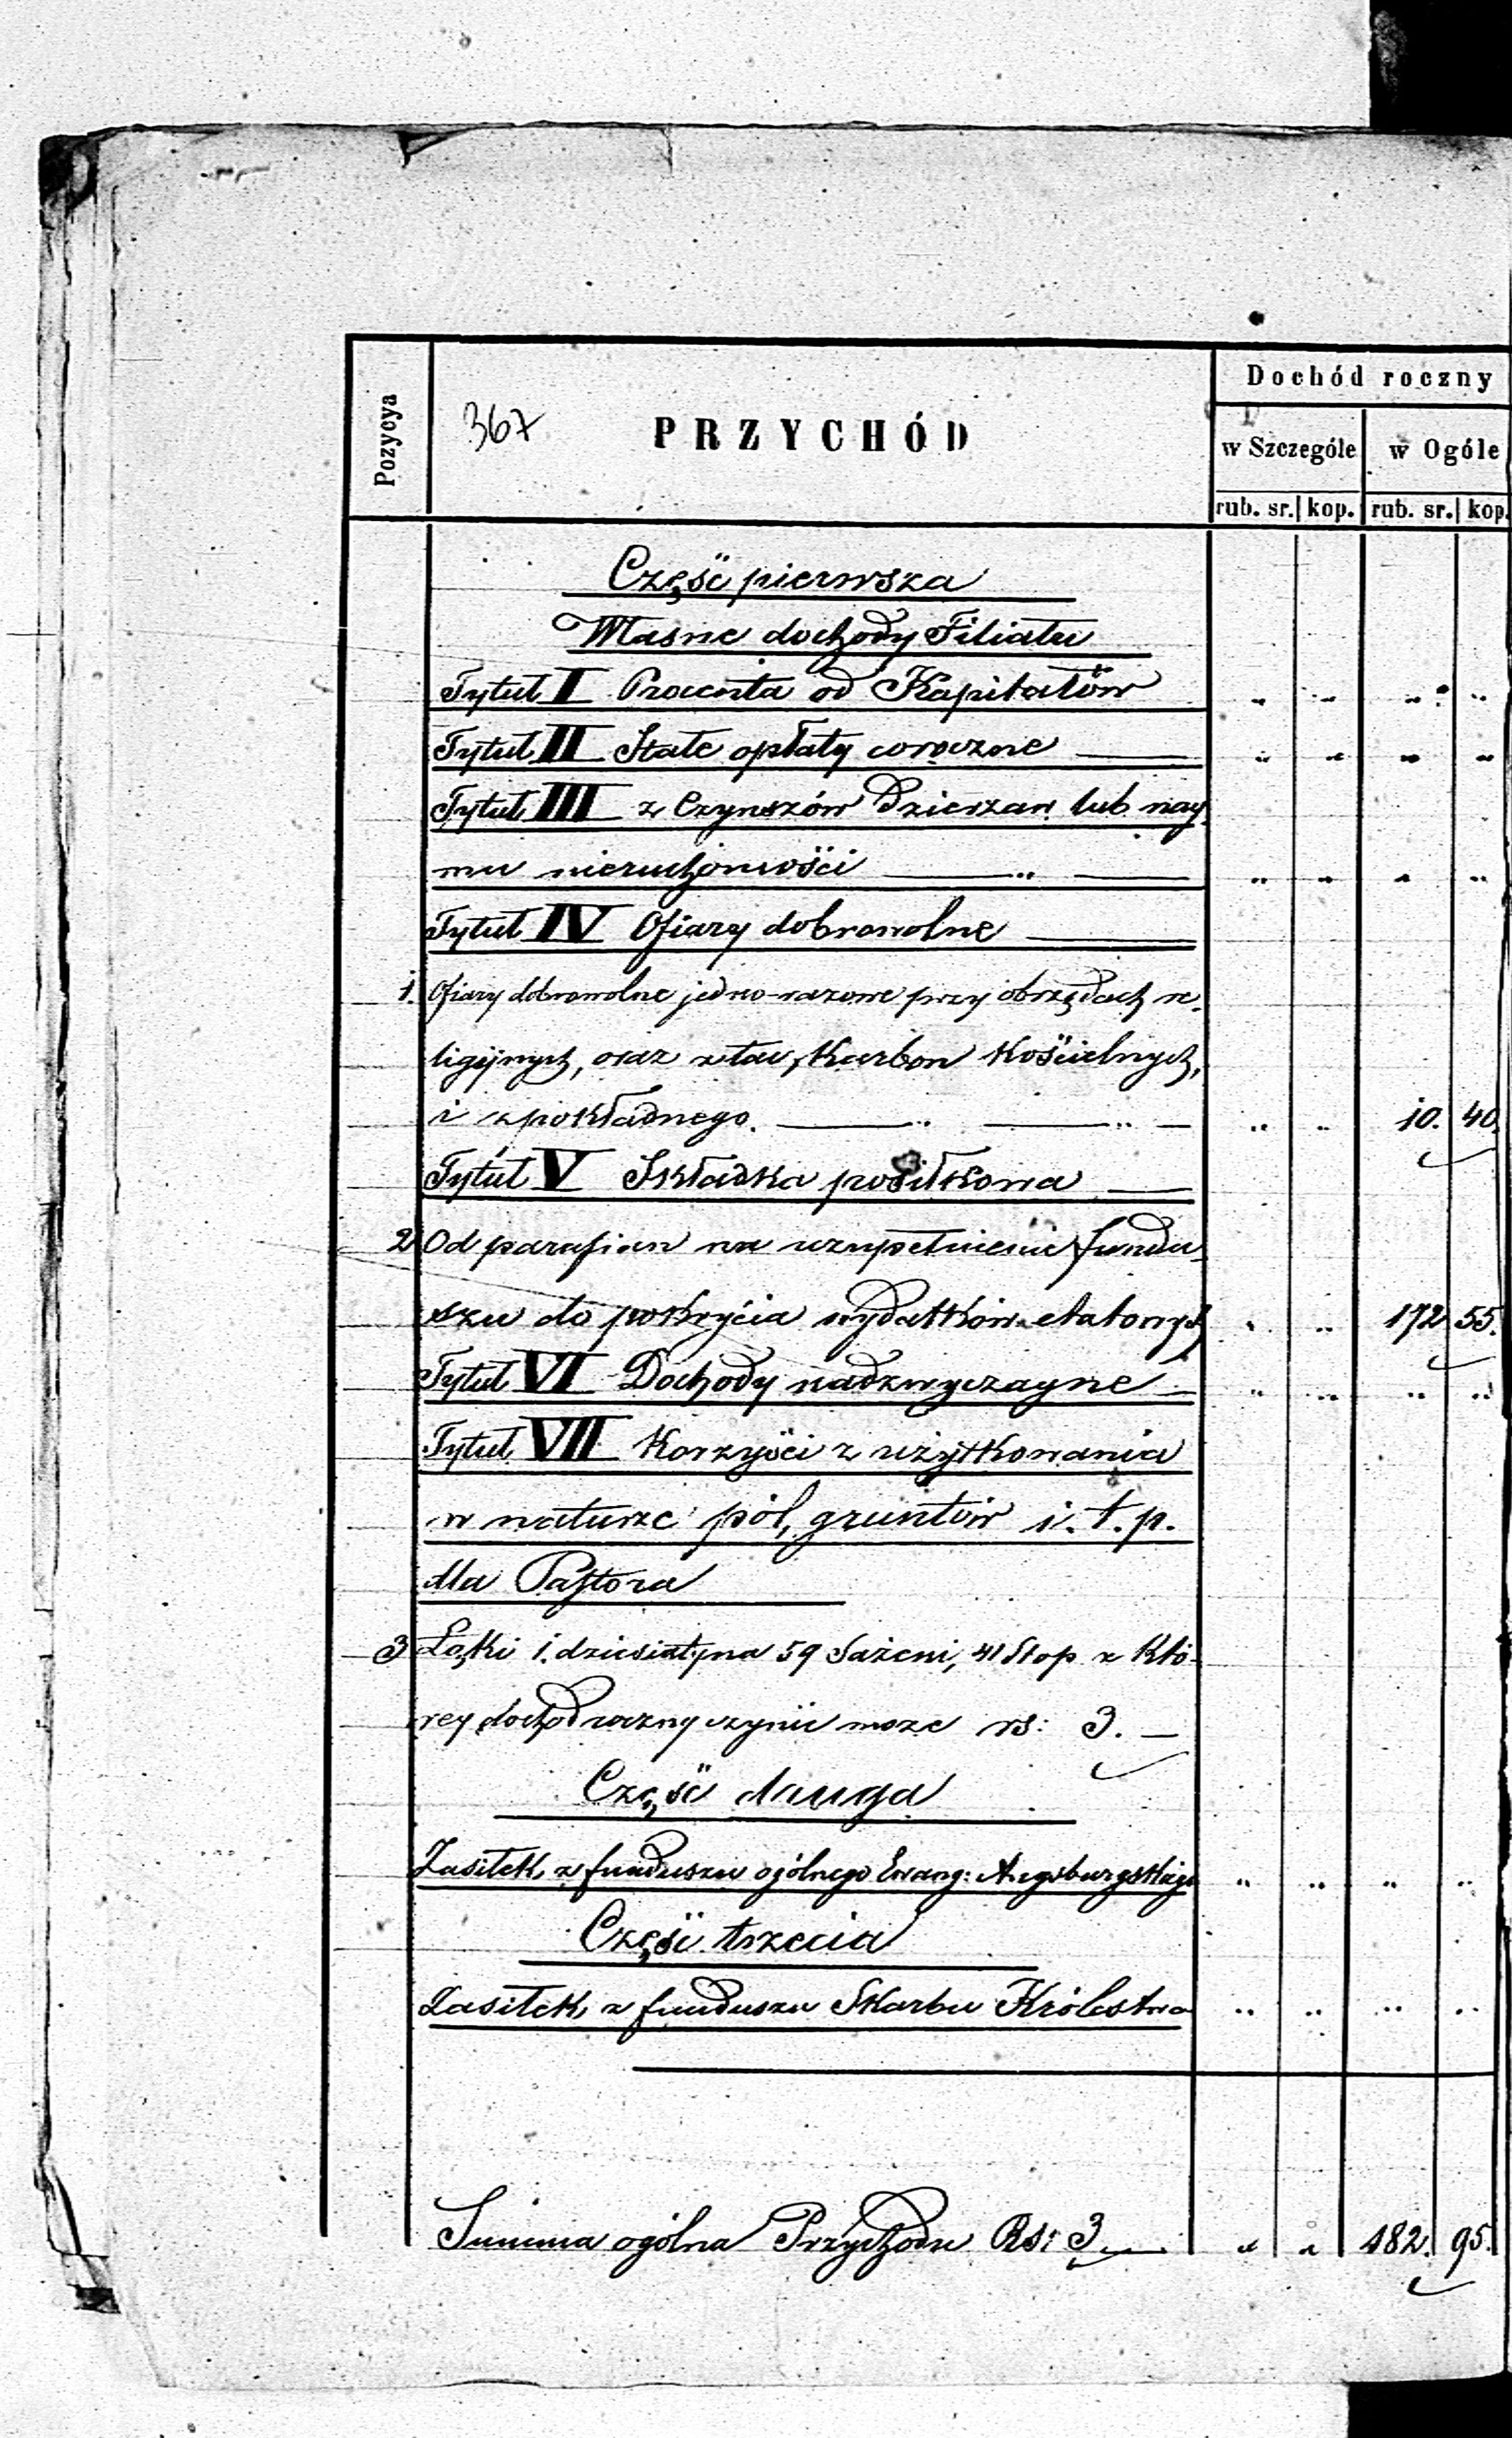 Pozycya
367 PRZYCHÓD
Dochód roczny
w Szczególe w Ogóle
rub. sr. kop. rub. sr. kop.
Część pierwsza
Własne dochody Filiału
Tytuł I Procenta od Kapitałów „ „ „ „
Tytuł II Stałe opłaty coroczne — „ „ „ „
Tytuł III z Czynszów Dzierzaw lub nay
mu nieruchomości — „ — „ „ „ „
Tytuł IV Ofiary dobrowolne —
1. Ofiary dobrowolne jedno-razowe przy obrzędach re-
ligijnych, oraz z tac, Karbon Kościelnych,
i z pokładnego. — „ — „ — „ „ 10. 40.
Tytuł V Składka posiłkowa —
2 Od parafian na uzupełnienie fundu-
szu do pokrycia wydatków etatowych „ „ 172 55.
Tytuł VI Dochody nadzwyczayne — „ „ „ „
Tytuł VII Korzyści z użytkowania
w naturze pól, gruntów i. t. p.
dla Pastora
3 Łąki 1. dziesiatyna 59 Sażeni, 41 Stop z któ-
rey dochod roczny czynić może rs: 3. —
Część druga
Zasiłek z funduszu ogólnego Ewang: Augsburgskiego „ „ „ „
Część trzecia
Zasiłek z funduszu Skarbu Królestwa „ „ „ „
Summa ogólna Przychodu Rs: 3 — „ „ 182. 95.